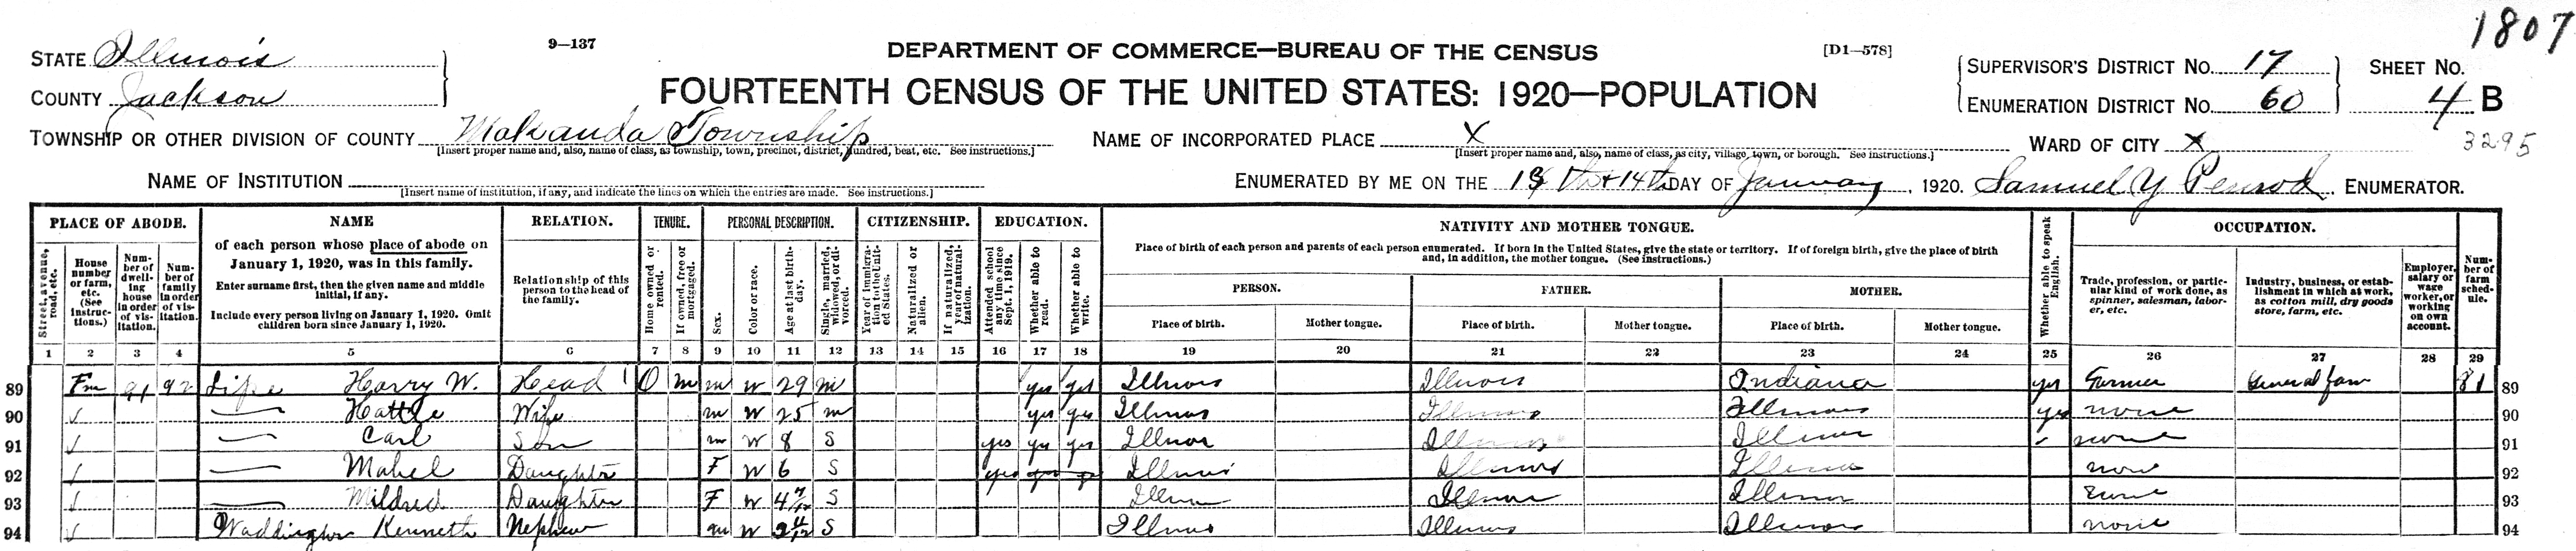 1807
STATE Illinois
9—137
DEPARTMENT OF COMMERCE—BUREAU OF THE CENSUS
[D1—578]
COUNTY Jackson
FOURTEENTH CENSUS OF THE UNITED STATES: 1920—POPULATION
SUPERVISOR'S DISTRICT No. 17
SHEET No.
ENUMERATION DISTRICT No. 60
4 B
TOWNSHIP OR OTHER DIVISION OF COUNTY Makanda Township
[Insert proper name and, also, name of class, as township, town, precinct, district, hundred, beat, etc. See instructions.]
NAME OF INCORPORATED PLACE X
[Insert proper name and, also, name of class, as city, village, town, or borough. See instructions.]
WARD OF CITY X
3295
NAME OF INSTITUTION
[Insert name of institution, if any, and indicate the lines on which the entries are made. See instructions.]
ENUMERATED BY ME ON THE 13th + 14th DAY OF January, 1920. Samuel Y Penrod, ENUMERATOR.
PLACE OF ABODE.
Street, avenue, road, etc.
House number or farm, etc. (See instructions.)
Number of dwelling house in order of visitation.
Number of family in order of visitation.
NAME
of each person whose place of abode on
January 1, 1920, was in this family.
Enter surname first, then the given name and middle
initial, if any.
Include every person living on January 1, 1920. Omit
children born since January 1, 1920.
RELATION.
Relationship of this
person to the head of
the family.
TENURE.
Home owned or rented.
If owned, free or mortgaged.
PERSONAL DESCRIPTION.
Sex.
Color or race.
Age at last birthday.
Single, married, widowed, or divorced.
CITIZENSHIP.
Year of immigration to the United States.
Naturalized or alien.
If naturalized, year of naturalization.
EDUCATION.
Attended school any time since Sept. 1, 1919.
Whether able to read.
Whether able to write.
NATIVITY AND MOTHER TONGUE.
Place of birth of each person and parents of each person enumerated. If born in the United States, give the state or territory. If of foreign birth, give the place of birth
and, in addition, the mother tongue. (See instructions.)
PERSON.
FATHER.
MOTHER.
Place of birth.
Mother tongue.
Place of birth.
Mother tongue.
Place of birth.
Mother tongue.
Whether able to speak English.
OCCUPATION.
Trade, profession, or particular kind of work done, as spinner, salesman, laborer, etc.
Industry, business, or establishment in which at work, as cotton mill, dry goods store, farm, etc.
Employer, salary or wage worker, or working on own account.
Number of farm schedule.
1 2 3 4 5 6 7 8 9 10 11 12 13 14 15 16 17 18 19 20 21 22 23 24 25 26 27 28 29
89 Fm 91 92 Lipe Harry W. Head 1 O m m W 29 m yes yes Illinois Illinois Indiana yes Farmer General farm 81 89
90 Hattie Wife m W 25 m yes yes Illinois Illinois Illinois yes none 90
91 Carl Son m W 8 S yes yes yes Illinois Illinois Illinois none 91
92 Mabel Daughter F W 6 S yes Illinois Illinois Illinois none 92
93 Mildred Daughter F W 4 S Illinois Illinois Illinois 93
94 Waddington Kenneth Nephew m W 2 11/12 S Illinois Illinois Illinois none 94